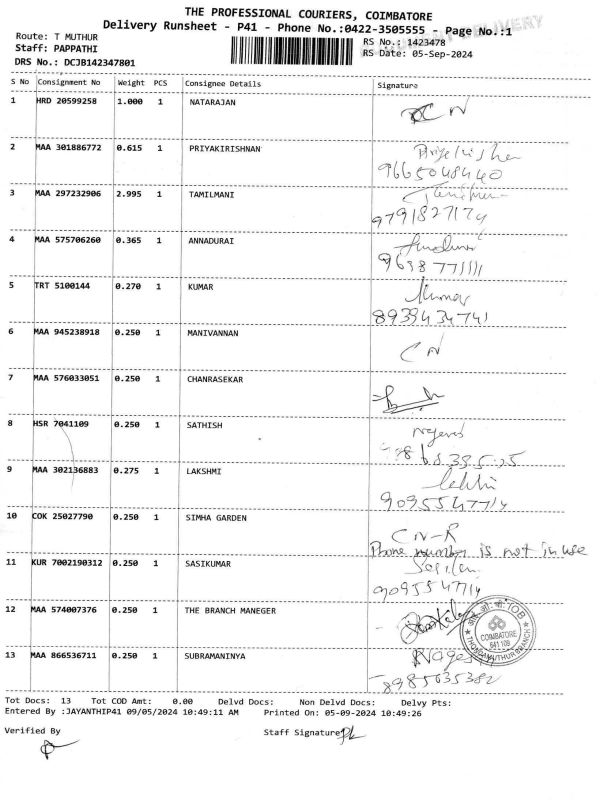 THE PROFESSIONAL COURIERS, COIMBATORE
Delivery Runsheet - P41 - Phone No.:0422-3505555 - Page No.:1
Route: T MUTHUR
RS No.: 1423478
Staff: PAPPATHI
RS Date: 05-Sep-2024
DRS No.: DCJB142347801
S No Consignment No Weight PCS Consignee Details Signature
1 HRD 20599258 1.000 1 NATARAJAN CN
2 MAA 301886772 0.615 1 PRIYAKIRISHNAN
9665048440
3 MAA 297232906 2.995 1 TAMILMANI
9791827174
4 MAA 575706260 0.365 1 ANNADURAI
5 TRT 5100144 0.270 1 KUMAR Kumar
8939434741
6 MAA 945238918 0.250 1 MANIVANNAN CN
7 MAA 576033051 0.250 1 CHANRASEKAR
8 HSR 7041109 0.250 1 SATHISH
9 MAA 302136883 0.275 1 LAKSHMI
9095547714
10 COK 25027790 0.250 1 SIMHA GARDEN CN-R
Phone number is not in use
11 KUR 7002190312 0.250 1 SASIKUMAR
9095547714
12 MAA 574007376 0.250 1 THE BRANCH MANEGER
IOB
COIMBATORE
641 108
THONDAMUTHUR BRANCH
13 MAA 866536711 0.250 1 SUBRAMANINYA
8985635382
Tot Docs: 13 Tot COD Amt: 0.00 Delvd Docs: Non Delvd Docs: Delvy Pts:
Entered By :JAYANTHIP41 09/05/2024 10:49:11 AM Printed On: 05-09-2024 10:49:26
Verified By
Staff Signature